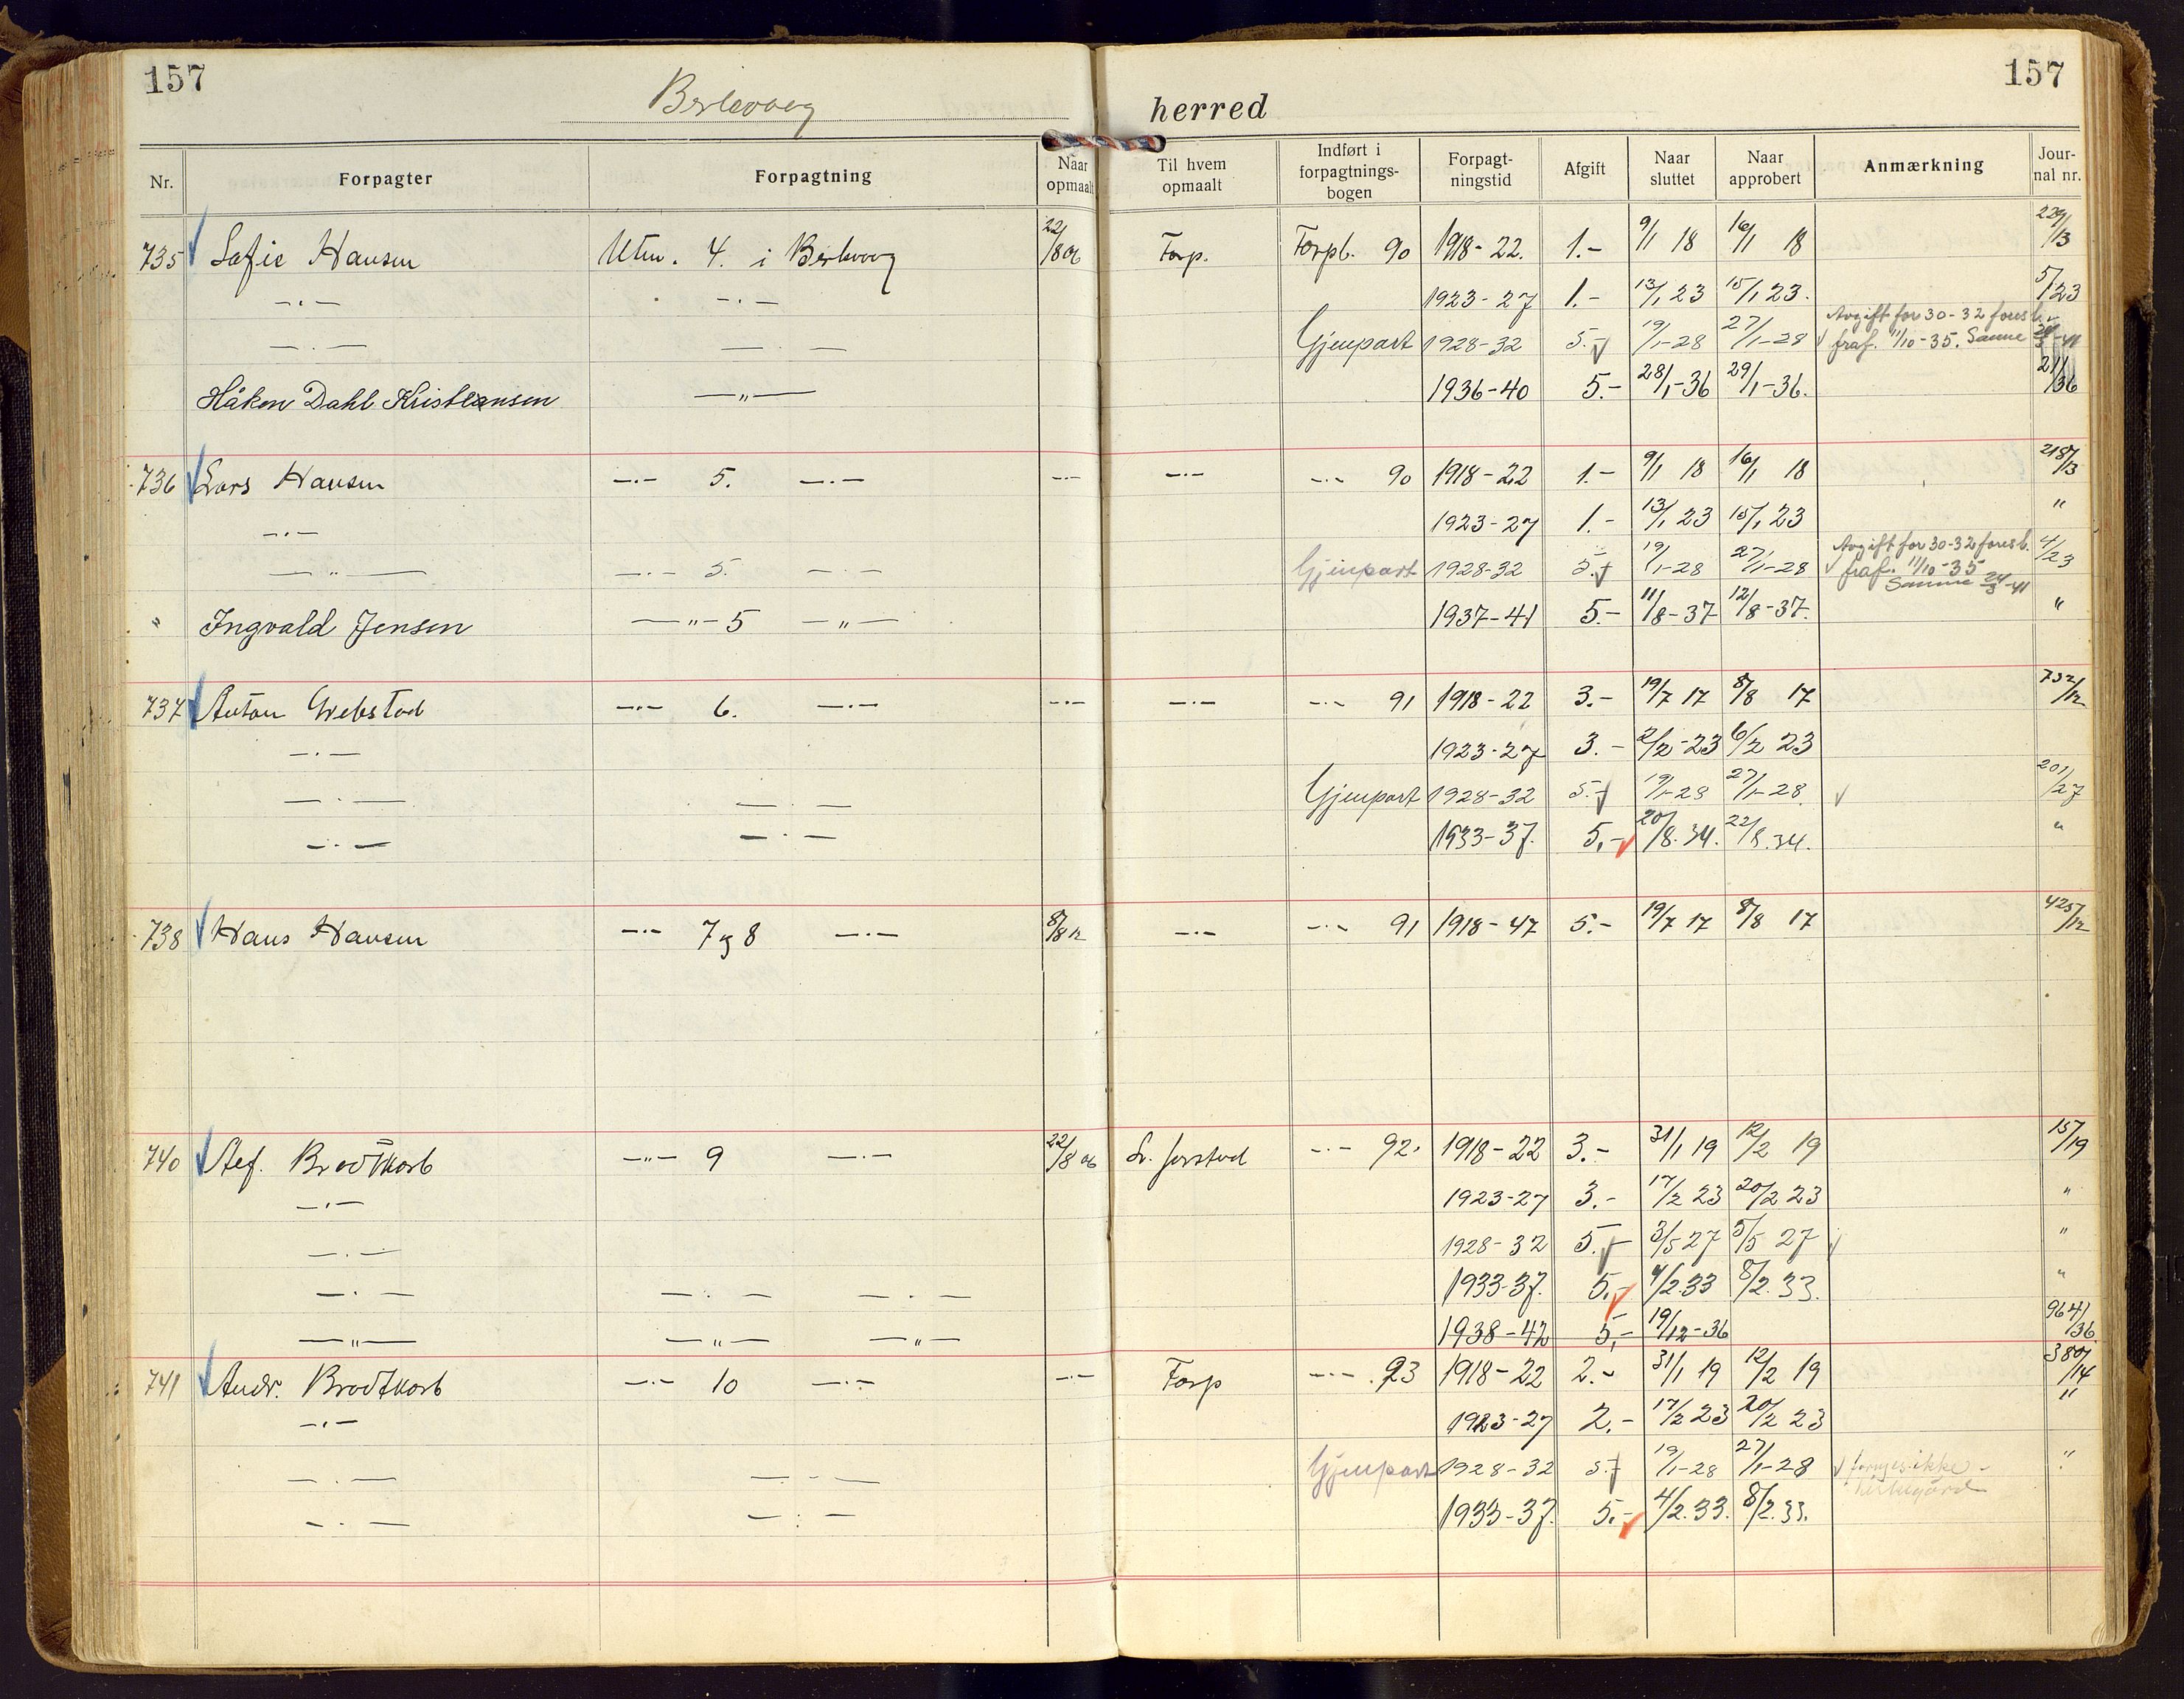 157
157
Berlevaag herred
Nr. Forpagter Forpagtning Naar opmaalt Til hvem opmaalt Indført i forpagtnings-bogen Forpagt-ningstid Afgift Naar sluttet Naar approbert Anmærkning Jour-nal nr.
735 Sofie Hansen Utm. 4. i Berlevaag 22/8 06 Forp. Forpb. 90 1918-22. 1.- 9/1 18 16/1 18 229/13
—·— —·— 1923-27 1.- 13/1 23 15/1 23. 5/23
—·— —·— Gjenpart 1928-32 5.- 19/1-28 27/1-28 Avgift for 30-32 foresl. fraf. 11/10-35. Samme
Håkon Dahl Kristiansen —"— 1936-40 5.- 28/1-36 29/1-36. 21/36
736 Lars Hansen —·— 5. —·— —·— —·— —·— 90 1918-22 1.- 9/1 18 16/1 18 218/13
—·— 1923-27 1.- 13/1 23 15/1 23 "
—"— —·— 5. —·— Gjenpart 1928-32 5.- 19/1-28 27/1-28 Avgift for 30-32 foresl. fraf. 11/10-35 Samme 24/3-41 4/23
" Ingvald Jensen —"— 5 —"— 1937-41 5.- 11/8-37 12/8-37. "
737 Anton Grebstad —·— 6. —·— —·— —·— —·— 91 1918-22 3.- 19/7 17 8/8 17 732/12
—·— 1923-27 3.- 2/2-23 6/2 23
—·— —·— Gjenpart 1928-32 5.- 19/1-28 27/1-28. 201/27
—·— —·— 1933-37. 5.- 20/8.34. 22/8.34. "
738 Hans Hansen —·— 7 og 8 —·— 8/8 12 —·— —·— 91 1918-47 5.- 19/7 17 8/8 17 425/12
740 Alf. Brodtkorb —"— 9 —·— 22/8 06 —·— 92. 1918-22 3.- 31/1 19 12/2 19 15/19
—·— 1923-27 3.- 17/2 23 20/2 23 "
—·— 1928-32 5.- 3/5 27 5/5 27 "
—·— —·— —·— 1933-37. 5.- 4/2.33 8/2.33. "
—"— —"— —"— 1938-42 5,- 19/12-36 964/36.
741 Andr. Brodtkorb —·— 10 —·— —·— Forp —·— 93 1918-22 2.- 31/1 19 12/2 19 380/14
—·— 1923-27 2.- 17/2 23 20/2 23 "
—·— —·— Gjenpart 1928-32 5.- 19/1-28 27/1-28 fornyes ikke - "
—·— —·— 1933-37. 5.- 4/2.33. 8/2.33.